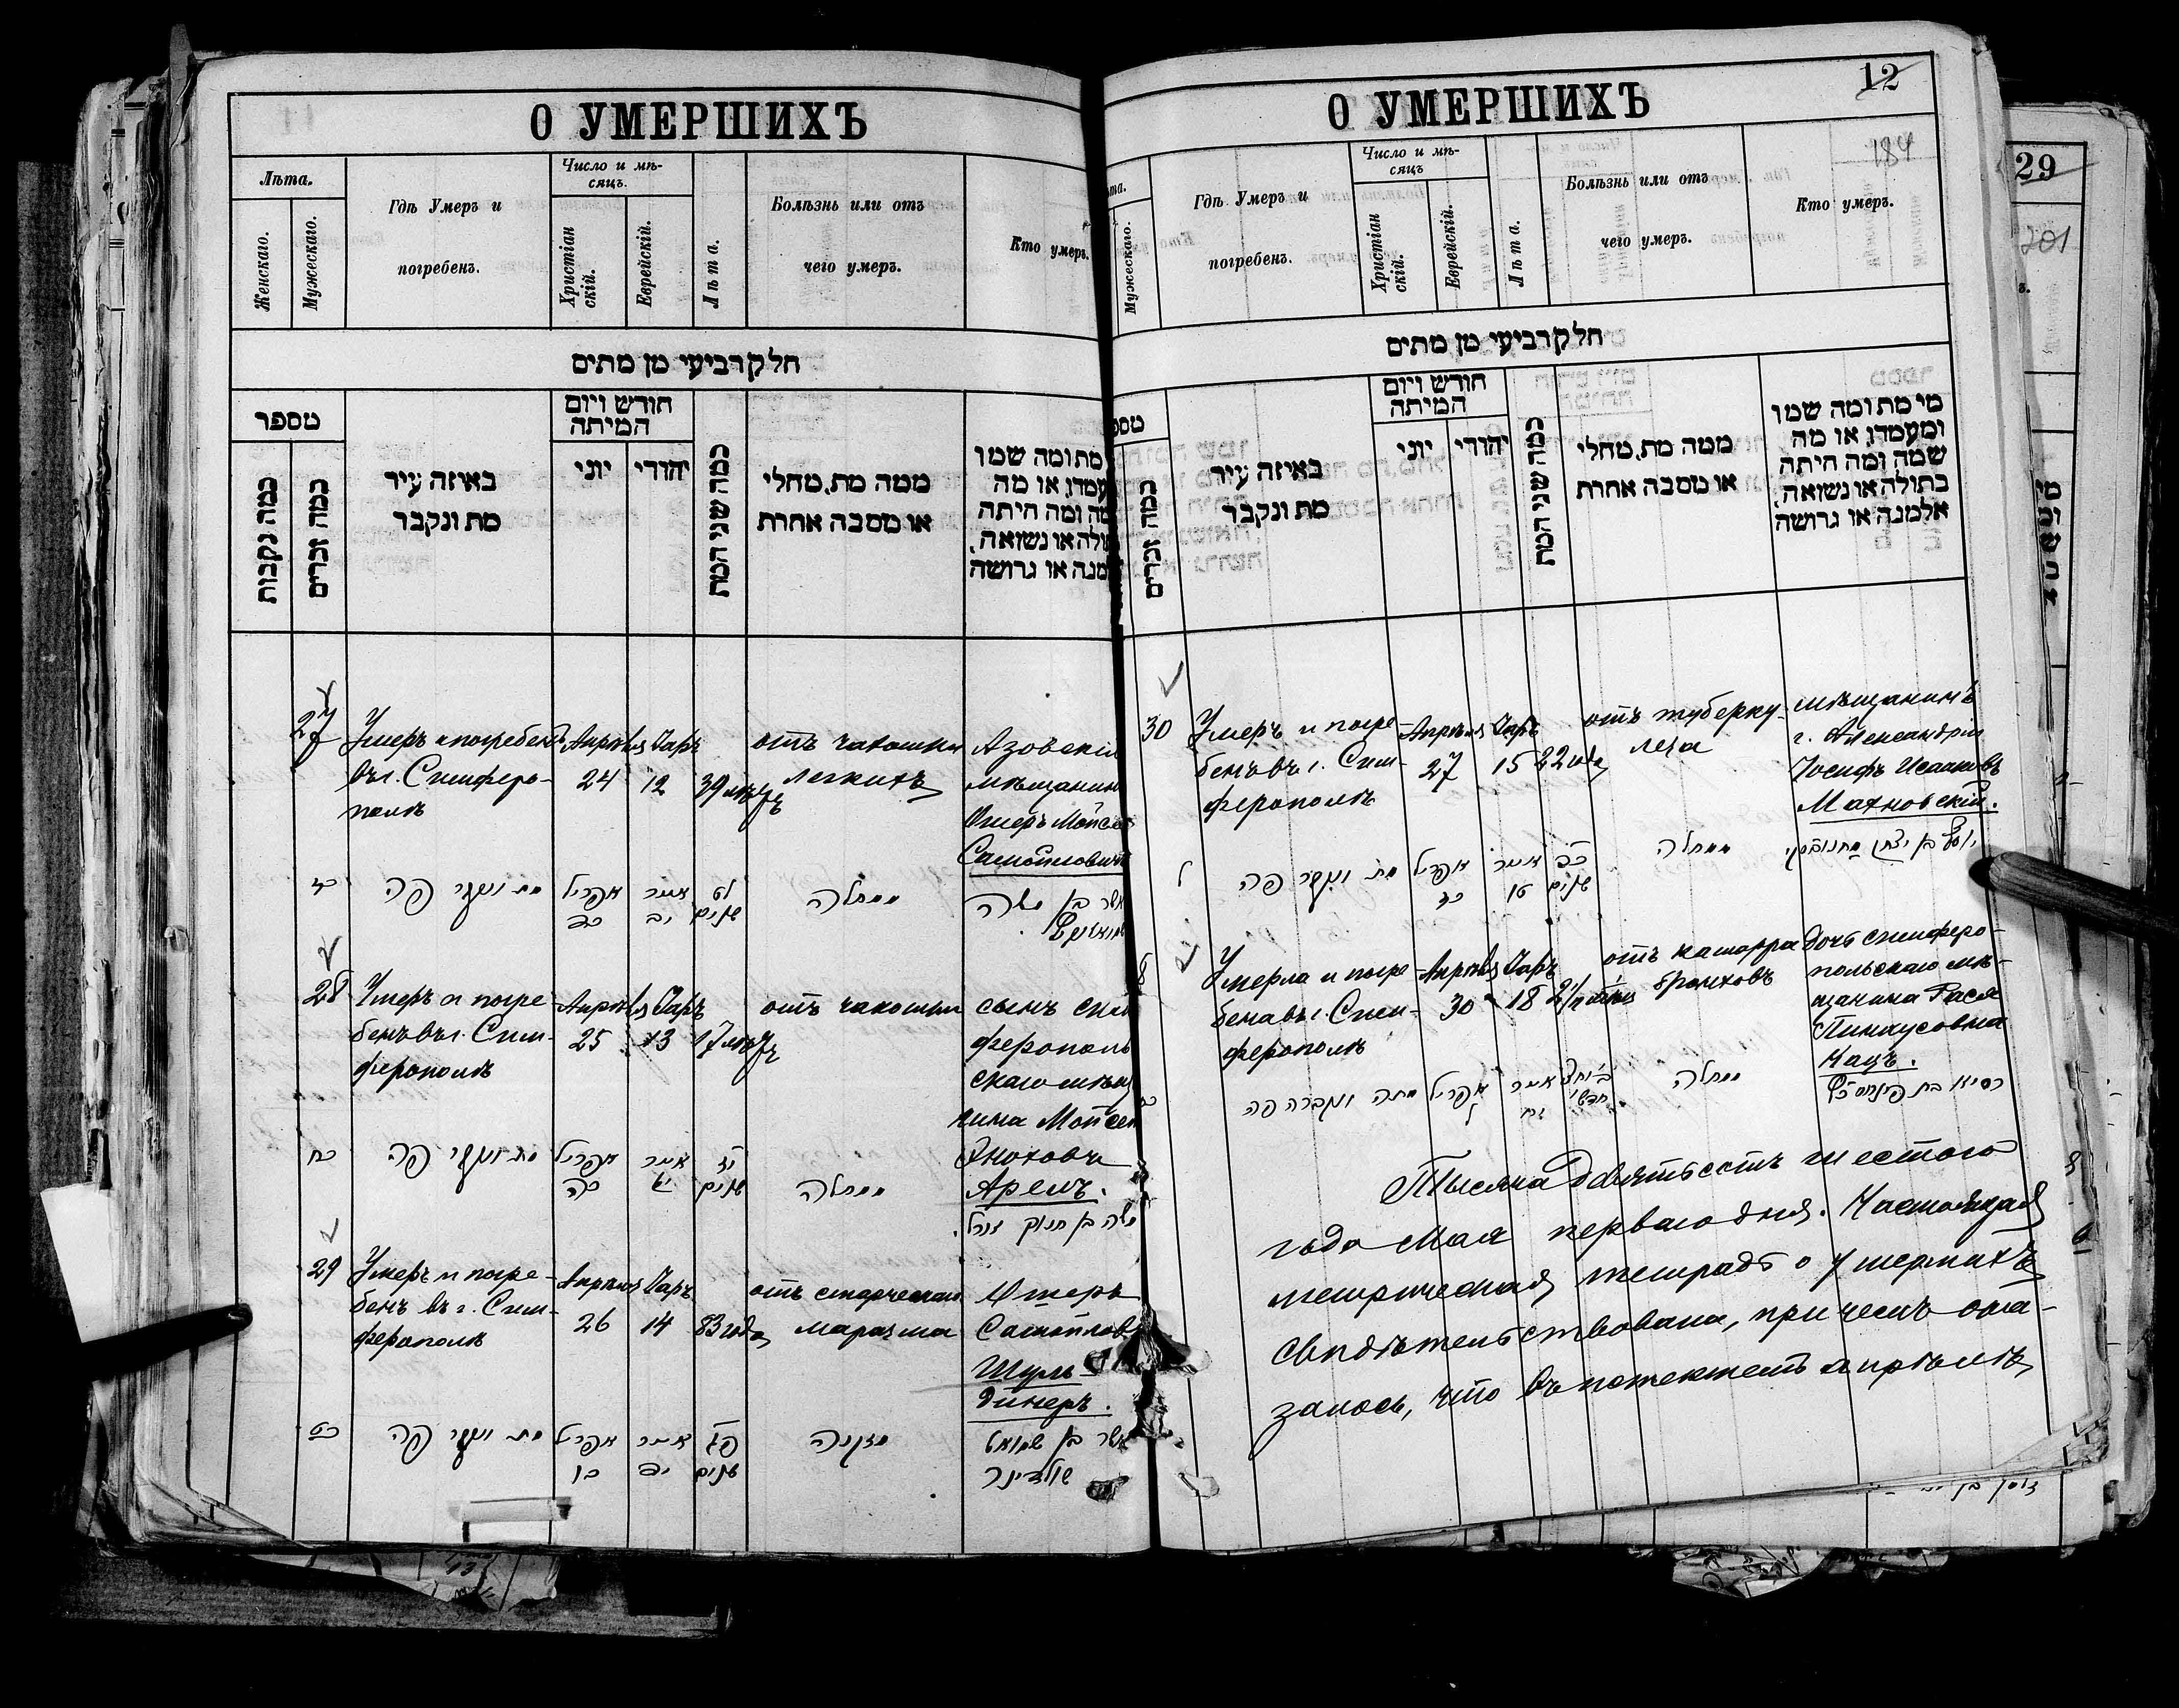 О УМЕРШИХЪ
Лѣта.
Женскаго.
Мужескаго.
Гдѣ Умеръ и
погребенъ.
Число и мѣ-
сяцъ.
Христіан
скій.
Еврейскій.
Лѣта.
Болѣзнь или отъ
чего умеръ.
Кто умеръ.
חלק רביעי מן מתים
מספר
כמה נקבות
כמה זכרים
באיזה עיר
מת ונקבר
חודש ויום
המיתה
יוני
יהודי
כמה שני המת
ממה מת, מחלי
או מסבה אחרת
מת ומה שמו
עמדו, או מה
מה ומה היתה
ולה או נשואה,
מנה או גרושה
27
Умеръ и погребенъ
въ г. Симферо-
полѣ
Апрѣля
24
Іаръ
12
39 лѣтъ
отъ чахотки
легкихъ
Азовскій
мѣщанинъ
Ошеръ Мойсе
Самойловичъ
מת ונקבר פה
אפריל
כד
אייר
יב
לט
שנים
ממחלה
אשר בן משה
28
Умеръ и погре-
бенъ въ г. Сим-
ферополѣ
Апрѣля
25
Іаръ
13
17 лѣтъ
отъ чахотки
сынъ сим
ферополь
скаго мѣщ
нина Мойсей
Эноховъ
Арелъ.
כח
מת ונקבר פה
אפריל
כה
אייר
יג
יז
שנים
ממחלה
משה בן חנוך
29
Умеръ и погре-
бенъ въ г. Сим-
ферополѣ
Апрѣля
26
Іаръ
14
83 года
отъ старческаго
маразма
Ошеръ
Самойлов
Шуль-
динеръ.
כט
מת ונקבר פה
אפריל
כו
אייר
יד
פג
שנים
מזקנה
אשר בן שמואל
שולדינר
12
184
О УМЕРШИХЪ
та.
Мужескаго.
Гдѣ Умеръ и
погребенъ.
Число и мѣ-
сяцъ
Христіан
скій.
Еврейскій.
Лѣта.
Болѣзнь или отъ
чего умеръ.
Кто умеръ.
חלק רביעי מן מתים
מספ
כמה זכרים
באיזה עיר
מת ונקבר
חודש ויום
המיתה
יוני
יהודי
כמה שני המת
ממה מת, מחלי
או מסבה אחרת
מי מת ומה שמו
ומעמדו, או מה
שמה ומה היתה
בתולה או נשואה,
אלמנה או גרושה
30
Умеръ и погре-
бенъ въ г. Сим-
ферополѣ
Апрѣля
27
Іаръ
15
22 года
отъ туберку-
леза
мѣщанинъ
г. Александріи
Іосифъ Исааковъ
Махновскій.
ל
מת ונקבר פה
אפריל
כז
אייר
טו
כב
שנים
ממחלה
יוסף בן יצחק מחנובסקי
Умерла и погре-
бена въ г. Сим-
ферополѣ
Апрѣля
30
Іаръ
18
отъ катарра
бронховъ
дочь симферо-
польскаго мѣ-
щанина Рася
Пинхусовна
Кацъ.
מתה ונקברה פה
אפריל
ל
אייר
יח
חדשי
ממחלה
רסיא בת פינחס כץ
Тысяча девятьсотъ шестого
года Мая перваго дня. Настоящая
метрическая тетрадь о умершихъ
свидѣтельствована, при чемъ ока-
залось, что въ истекшемъ апрѣлѣ
29
201